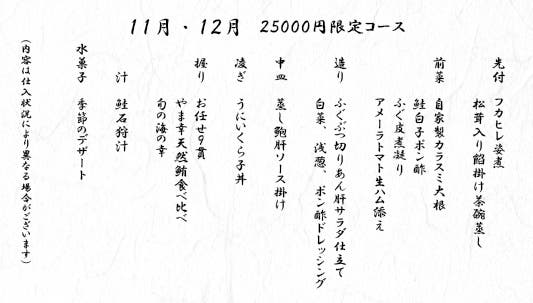 11月・12月 25000円限定コース
先付 フカヒレ姿煮
松茸入り餡掛け茶碗蒸し
前菜 自家製カラスミ大根
鮭白子ポン酢
ふぐ皮煮凝り
アメーラトマト生ハム添え
造り ふぐぶつ切りあん肝サラダ仕立て
白菜、浅葱、ポン酢ドレッシング
中皿 蒸し鮑肝ソース掛け
凌ぎ うにいくら子丼
握り お任せ9貫
やま幸天然鮪食べ比べ
旬の海の幸
汁 鮭石狩汁
水菓子 季節のデザート
(内容は仕入状況により異なる場合がございます)